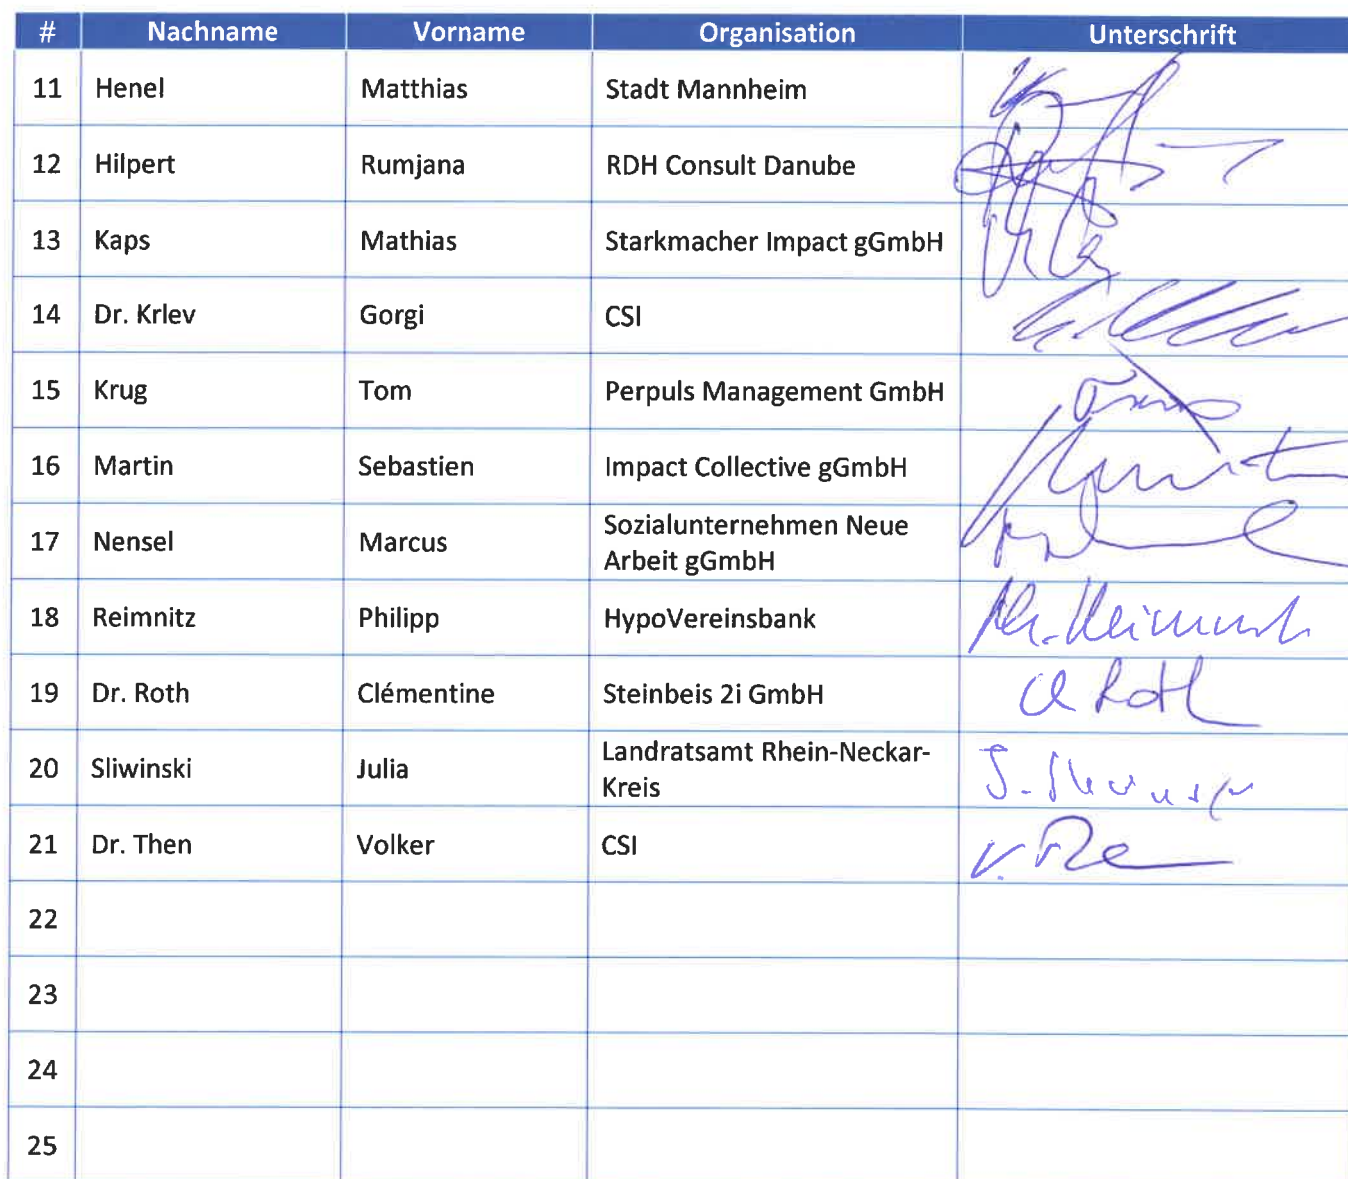 # Nachname Vorname Organisation Unterschrift
11 Henel Matthias Stadt Mannheim
12 Hilpert Rumjana RDH Consult Danube
13 Kaps Mathias Starkmacher Impact gGmbH
14 Dr. Krlev Gorgi CSI
15 Krug Tom Perpuls Management GmbH
16 Martin Sebastien Impact Collective gGmbH
17 Nensel Marcus Sozialunternehmen Neue
Arbeit gGmbH
18 Reimnitz Philipp HypoVereinsbank
19 Dr. Roth Clémentine Steinbeis 2i GmbH Cl Roth
20 Sliwinski Julia Landratsamt Rhein-Neckar-
Kreis
21 Dr. Then Volker CSI
22
23
24
25